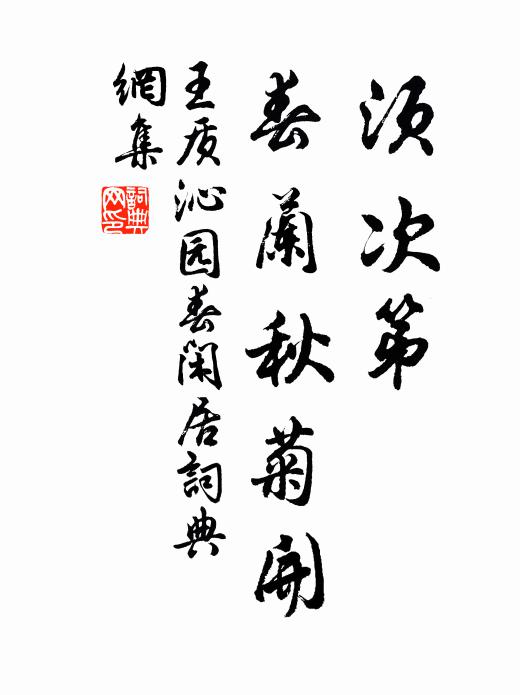 須次第
春蘭秋菊開
王质沁园春閑居詞典
網集
詞典
网印